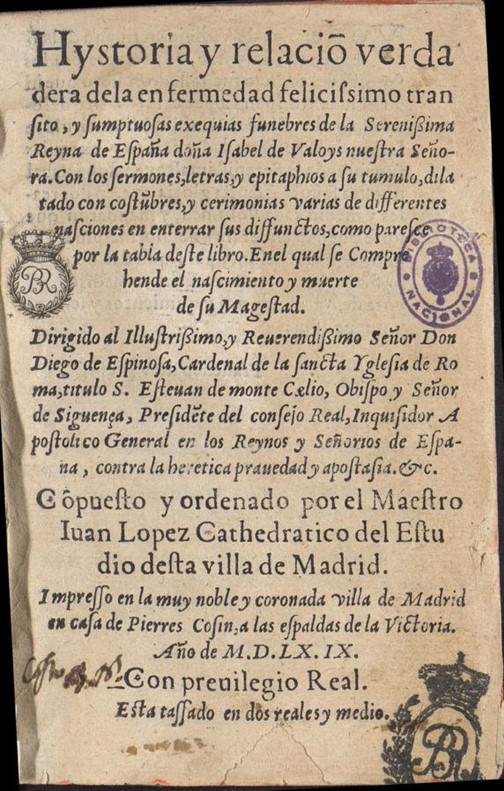 Hystoria y relaciō verda
dera dela enfermedad felicissimo tran
sito, y sumptuosas exequias funebres de la Serenißima
Reyna de España doña Isabel de Valoys nuestra Seño-
ra. Con los sermones, letras, y epitaphios a su tumulo, dila
tado con costūbres, y cerimonias varias de differentes
nasciones en enterrar sus diffunctos, como paresce
por la tabla deste libro. Enel qual se Compre
hende el nascimiento y muerte
de su Magestad.
Dirigido al Illustrißimo, y Reuerendißimo Señor Don
Diego de Espinosa, Cardenal de la sancta Yglesia de Ro
ma, titulo S. Esteuan de monte Cælio, Obispo y Señor
de Siguença, Presidēte del consejo Real, Inquisidor A
postolico General en los Reynos y Señorios de Espa-
na, contra la heretica prauedad y apostasia. &c.
Cōpuesto y ordenado por el Maestro
Iuan Lopez Cathedratico del Estu
dio desta villa de Madrid.
Impresso en la muy noble y coronada villa de Madrid
en casa de Pierres Cosin, a las espaldas de la Victoria.
Año de M.D.LX.IX.
Con preuilegio Real.
Esta tassado en dos reales y medio.
BIBLIOTECA NACIONAL
BR
BR